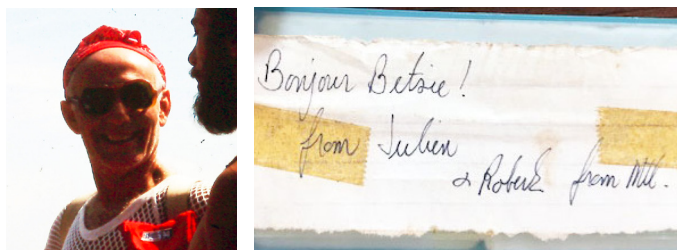 Bonjour Betsie!
from Julien
& Robert from Mtl.